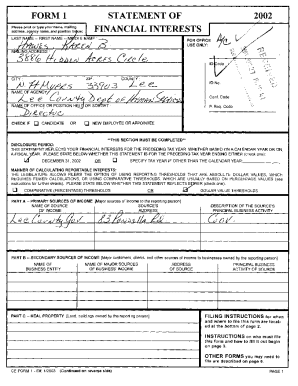 FORM 1
STATEMENT OF
2002
Please print or type your name, mailing
address, agency name, and position below:
FINANCIAL INTERESTS
LAST NAME - FIRST NAME - MIDDLE NAME
FOR OFFICE
USE ONLY:
Hawes Karen B
MAILING ADDRESS
3886 Hidden Acres Circle
CITY ZIP COUNTY
N Ft Myers 33903 Lee
NAME OF AGENCY
Lee County Dept of Human Services
NAME OF OFFICE OR POSITION HELD OR SOUGHT
Director
CHECK IF CANDIDATE OR NEW EMPLOYEE OR APPOINTEE
ID No.
Conf. Code
P. Req. Code
**THIS SECTION MUST BE COMPLETED**
DISCLOSURE PERIOD:
THIS STATEMENT REFLECTS YOUR FINANCIAL INTERESTS FOR THE PRECEDING TAX YEAR, WHETHER BASED ON A CALENDAR YEAR OR ON
A FISCAL YEAR. PLEASE STATE BELOW WHETHER THIS STATEMENT IS FOR THE PRECEDING TAX YEAR ENDING EITHER (check one):
DECEMBER 31, 2002 OR SPECIFY TAX YEAR IF OTHER THAN THE CALENDAR YEAR:
MANNER OF CALCULATING REPORTABLE INTERESTS:
THE LEGISLATURE ALLOWS FILERS THE OPTION OF USING REPORTING THRESHOLDS THAT ARE ABSOLUTE DOLLAR VALUES, WHICH
REQUIRES FEWER CALCULATIONS, OR USING COMPARATIVE THRESHOLDS, WHICH ARE USUALLY BASED ON PERCENTAGE VALUES (see
instructions for further details). PLEASE STATE BELOW WHETHER THIS STATEMENT REFLECTS EITHER (check one):
COMPARATIVE (PERCENTAGE) THRESHOLDS OR DOLLAR VALUE THRESHOLDS
PART A -- PRIMARY SOURCES OF INCOME [Major sources of income to the reporting person]
NAME OF SOURCE
OF INCOME
SOURCE'S
ADDRESS
DESCRIPTION OF THE SOURCE'S
PRINCIPAL BUSINESS ACTIVITY
Lee County Gov. 83 Pondella Rd Gov.
PART B -- SECONDARY SOURCES OF INCOME [Major customers, clients, and other sources of income to businesses owned by the reporting person]
NAME OF
BUSINESS ENTITY
NAME OF MAJOR SOURCES
OF BUSINESS' INCOME
ADDRESS
OF SOURCE
PRINCIPAL BUSINESS
ACTIVITY OF SOURCE
PART C -- REAL PROPERTY [Land, buildings owned by the reporting person]
FILING INSTRUCTIONS for when
and where to file this form are located
at the bottom of page 2.
INSTRUCTIONS on who must file
this form and how to fill it out begin
on page 3.
OTHER FORMS you may need to
file are described on page 6.
CE FORM 1 - Eff. 1/2003 (Continued on reverse side)
PAGE 1